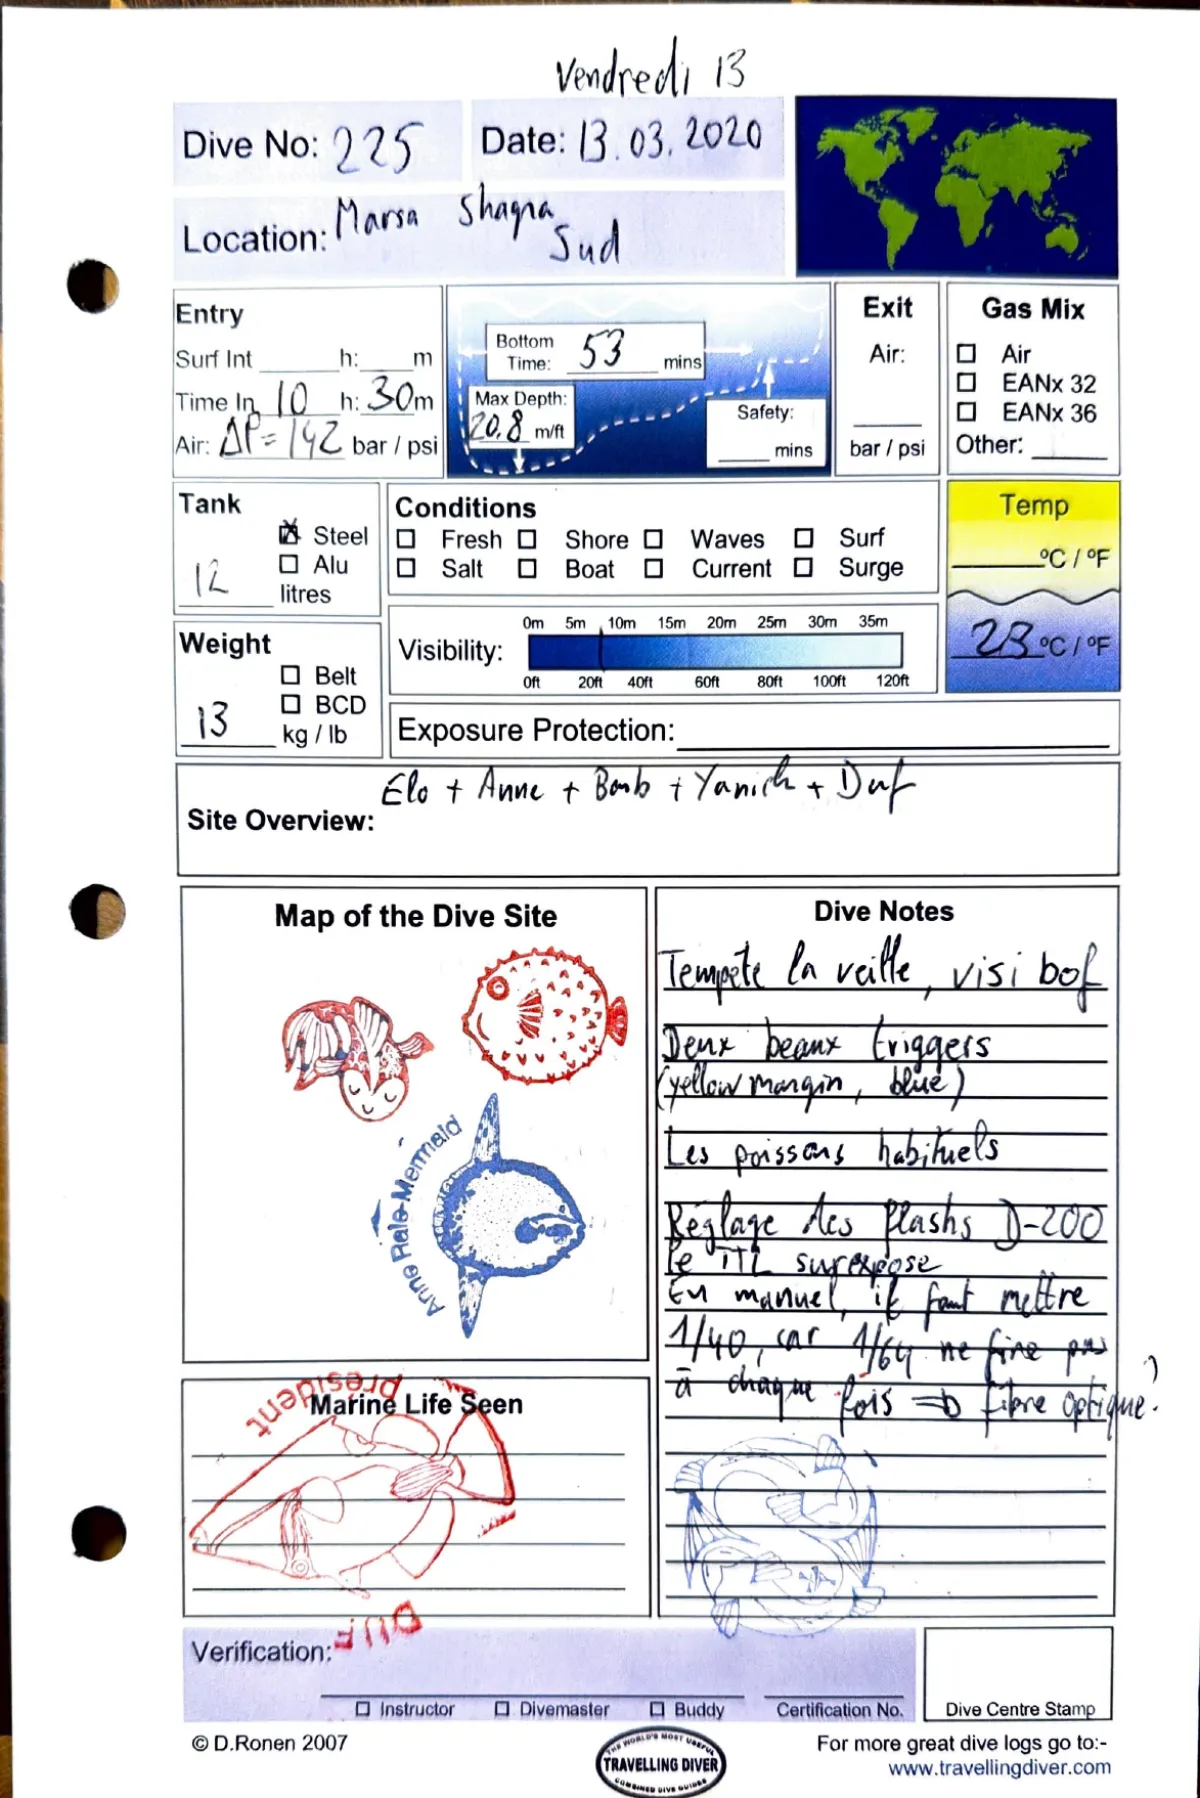 Vendredi 13
Dive No: 225 Date: 13.03.2020
Location: Marsa Shagra
Sud
Entry
Surf Int ____ h: ____ m
Time In 10 h: 30 m
Air: ΔP= 142 bar / psi
Bottom
Time: 53 mins
Max Depth:
20.8 m/ft
Safety:
____ mins
Exit
Air:
____
bar / psi
Gas Mix
☐ Air
☐ EANx 32
☐ EANx 36
Other: ____
Tank
☒ Steel
☐ Alu
12 litres
Conditions
☐ Fresh ☐ Shore ☐ Waves ☐ Surf
☐ Salt ☐ Boat ☐ Current ☐ Surge
Temp
____ ºC / ºF
23 ºC / ºF
Weight
☐ Belt
☐ BCD
13 kg / lb
0m 5m 10m 15m 20m 25m 30m 35m
Visibility:
0ft 20ft 40ft 60ft 80ft 100ft 120ft
Exposure Protection: ____
Elo + Anne + Barb + Yanick + Duf
Site Overview:
Map of the Dive Site
Anne Rale-Mermaid
Dive Notes
Tempête la veille, visi bof
Deux beaux triggers
(yellow margin, blue)
Les poissons habituels
Réglage des flashs D-200
Le TTL surexpose
En manuel, il faut mettre
1/40, car 1/64 ne fire pas
à chaque fois => fibre optique?
Marine Life Seen
président
DUF
Verification:
☐ Instructor ☐ Divemaster ☐ Buddy Certification No.
Dive Centre Stamp
© D.Ronen 2007
THE WORLD'S MOST USEFUL
TRAVELLING DIVER
COMBINED DIVE GUIDES
For more great dive logs go to:-
www.travellingdiver.com